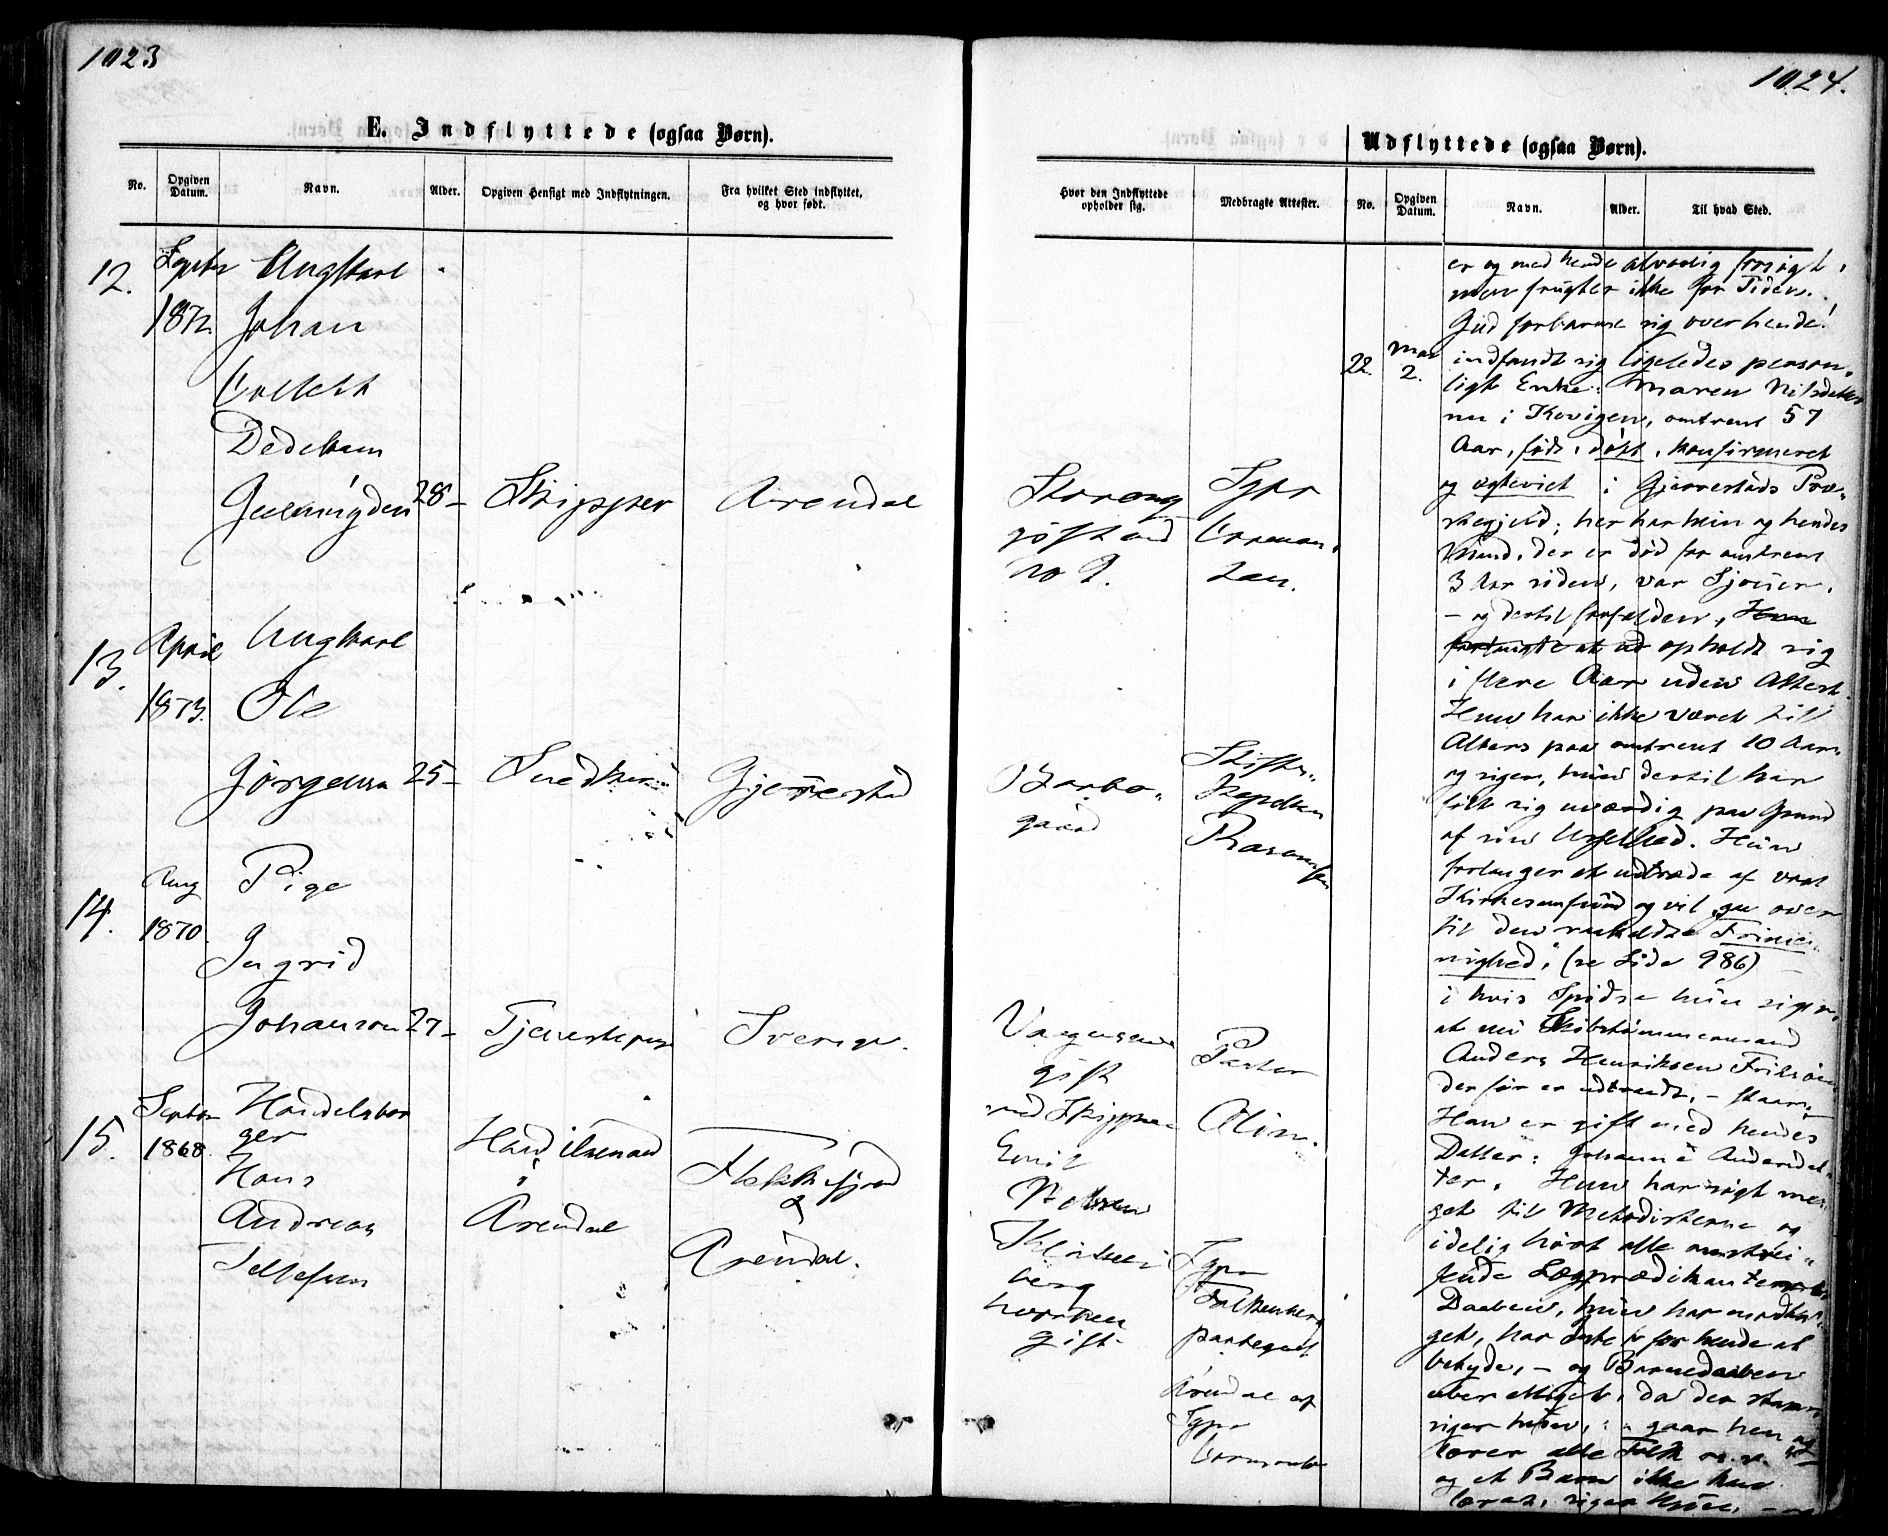 1023
E. Indflyttede (ogsaa Børn).
No.
Opgiven Datum.
Navn.
Alder.
Opgiven Hensigt med Indflytningen.
Fra hvilket Sted indflyttet, og hvor født.
12.
Septbr
1872.
Ungkarl
Johan
Dedekam
28-
Skipper
Arendal
13.
April
1873.
Ungkarl
Ole
Jørgensen
25-
Snedker
Gjerrestad
14.
Aug
1870.
Pige
Ingrid
Johanson
27-
Tjenestepige
Sverige.
15.
Septbr
1868.
Handelsbor
ger
Hans
Andreas
Tellefsen
Handelsmand
i
Arendal
Flekkefjord
&
Arendal.
1024.
Udflyttede (ogsaa Børn).
Hvor den Indflyttede opholder sig.
Medbragte Attester.
No.
Opgiven Datum.
Navn.
Alder.
Til hvad Sted.
Storeng
gift und
No
Sgpr
Barbo-
gaard
Stifts-
kapellan
gift
med Skipper
Emil
Pastor
Kløcker
berg
gift
Sgpr
Falkenberg
paategnet
Arendal af
Sgpr
er og med hende alvorlig forsøgt,
men frugter ikke for Tiden.
Gud forbarme sig over hende!
22.
Mai
2.
indfandt sig ligeledes person-
ligt Enke: Maren Nilsdatter
nu i Kovigen, omtrent 57
Aar, født, døbt, konfirmeret
og egteviet i Gjerrestads Præ-
stegjeld; her har hun og hendes
Mand, der er død for omtrent
3 Aar siden, var Sjømer,
- og dertil forfalden, Hun
forlangte at ud opholdt sig
i flere Aar uden Attest.
Hun har ikke været til
Alters paa omtrent 10 Aar,
og siger, hun dertil har
følt sig uværdig paa Grund
af sin Usselhed. Hun
forlanger at udtræde af vort
Kirkesamfund og vil gaa over
til den saakaldte Frime-
nighed, (se Side 986)
i hvis Spidse hun siger,
at nu Skibstømmermand
Anders Henriksen Friksøen
der før er udtraadt, - staar,
Han er gift med hendes
Datter: Johanne Andersdat-
ter. Hun har søgt me-
get til Methodisterne og
idelig hørt alle omstrei-
fende Lægprædikanter
Daaben, hun har modta-
get, har Intet for hende at
betyde, - og Barnedaaben
siger hun, - gaar hen og
lærer alle Folk
og et Barn ikke kan
læres, siger Hun, -